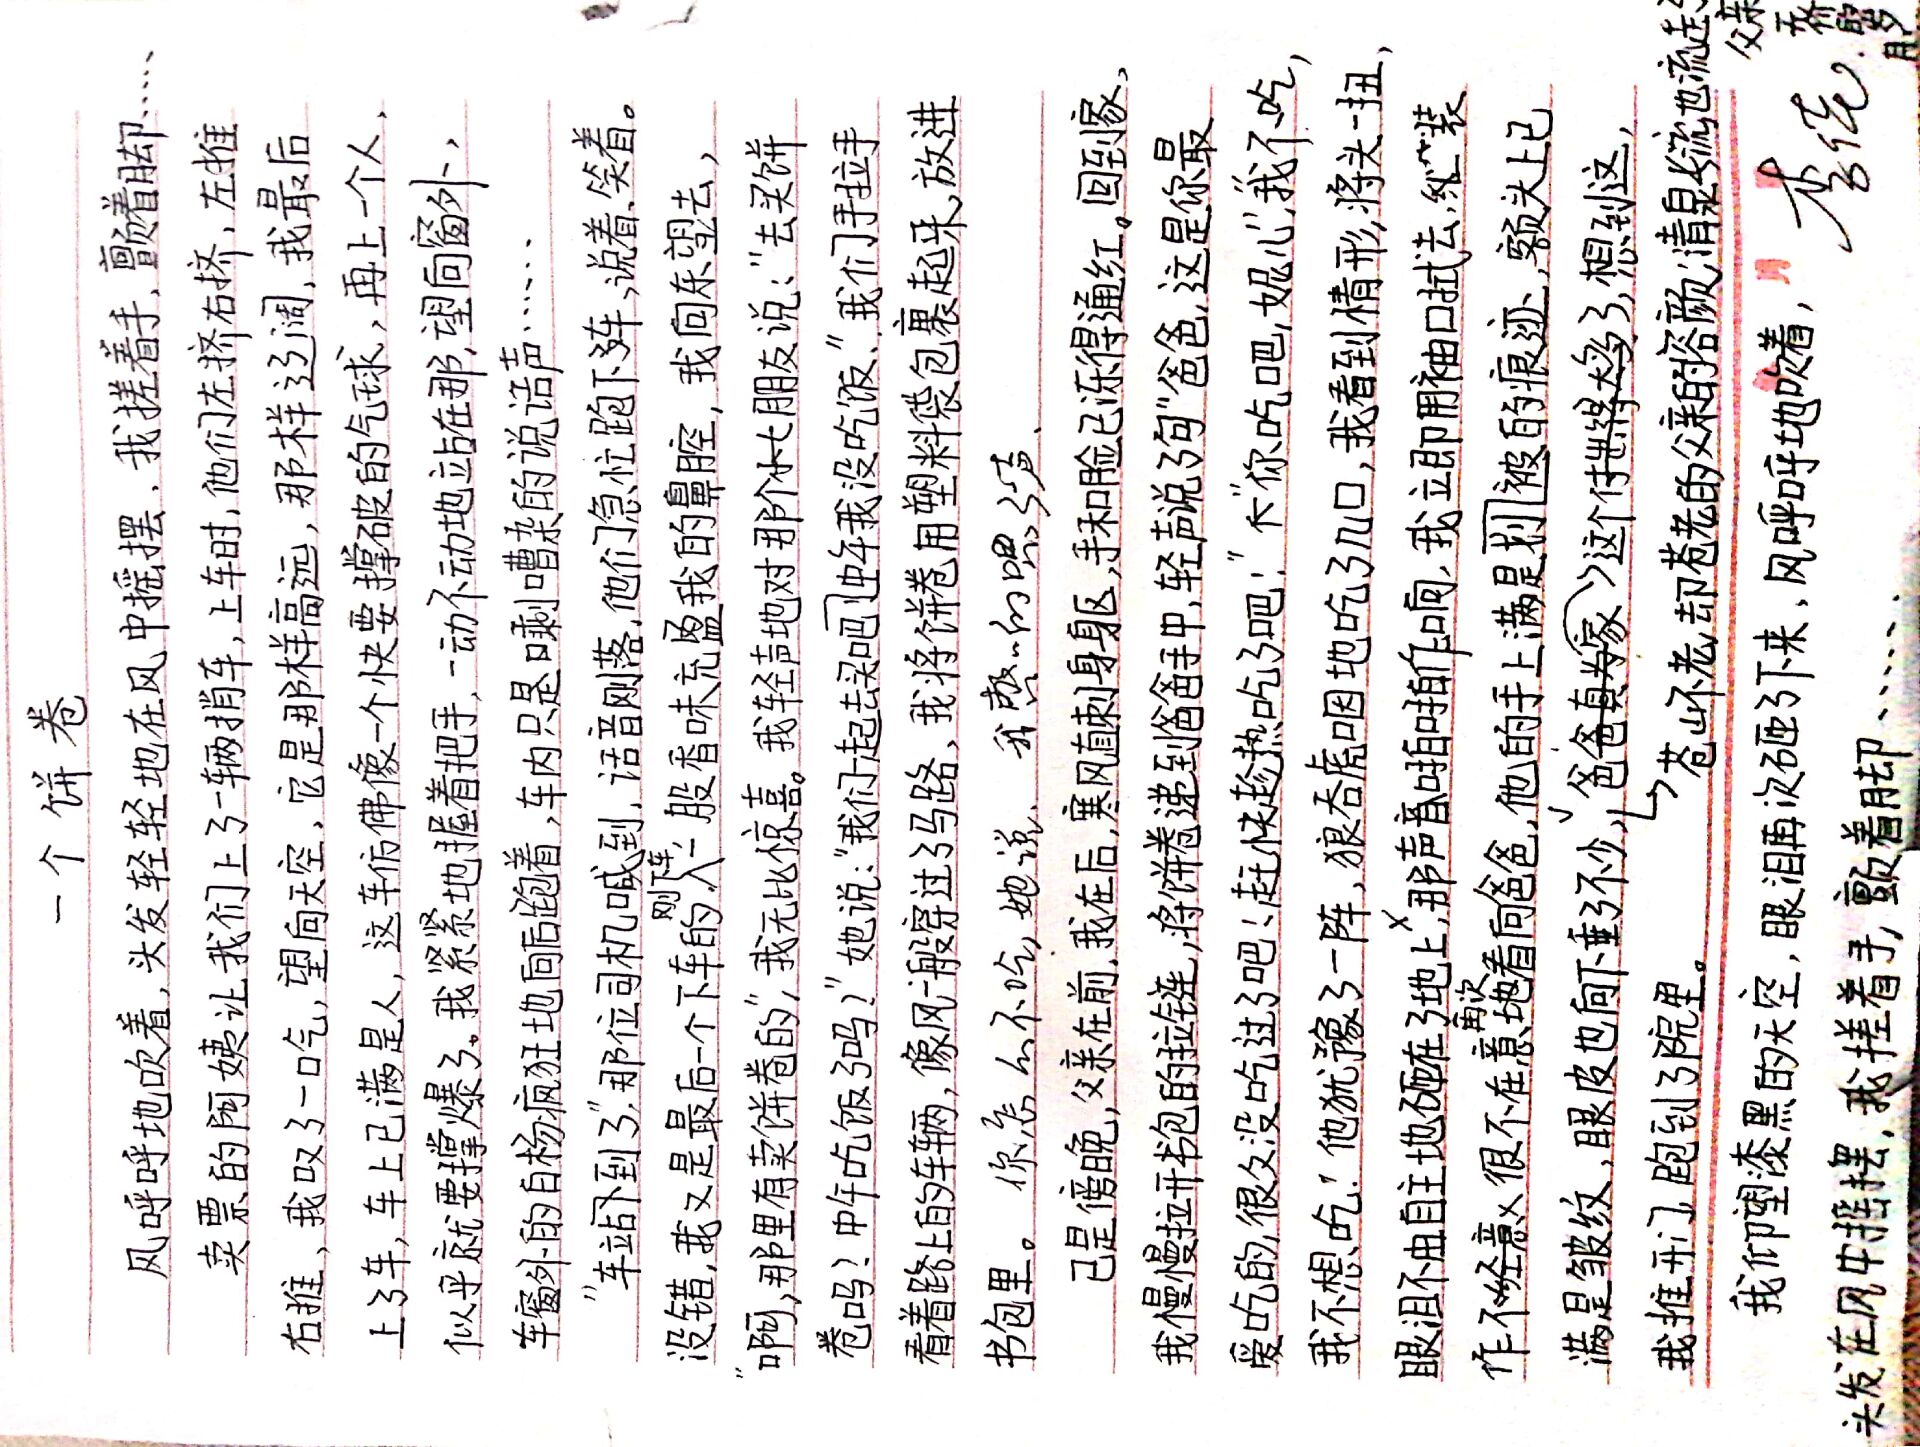 一个饼卷
风呼呼地吹着，头发轻轻地在风中摇摆，我搓着手，颤着脚……
卖票的阿姨让我们上了一辆捎车，上车时，他们左挤右挤，左推
右推，我叹了一口气，望向天空，它是那样高远，那样辽阔，我最后
上了车，车上已满是人，这车仿佛像一个快要撑破的气球，再上一个人，
似乎就要撑爆了。我紧紧地握着把手，一动不动地站在那，望向窗外，
车窗外的白杨疯狂地向后跑着，车内只是剩嘈杂的说话声……
“车站到了”那位司机喊到，话音刚落，他们急忙跑下了车，说着、笑着。
刚下车，
没错，我又是最后一个下车的人，一股香味充盈我的鼻腔，我向东望去，
“啊，那里有卖饼卷的”，我无比惊喜。我轻声地对那个小七朋友说：“去买饼
卷吗？中午吃饭了吗？”她说：“我们一起去买吧！中午我没吃饭”，我们手拉手
看着路上的车辆，像风一般穿过了马路，我将饼卷用塑料袋包裹起来，放进
书包里。你怎么不吃，她说，我敷衍的嗯了声.
已是傍晚，父亲在前，我在后，寒风直刺身躯，手和脸已冻得通红。回到家，
我慢慢拉开书包的拉链，将饼卷递到爸爸手中，轻声说了句“爸爸，这是你最
爱吃的，很久没吃过了吧！赶快趁热吃了吧！”“你吃吧，妮心”，我不吃，
我不想吃！他犹豫了一阵，狼吞虎咽地吃了几口，我看到情形，将头一扭，
眼泪不由自主地砸在了地上，那声音啪啪作响，我立即用袖口拭去，红装
再次
作不经意又很不在意地看向爸爸，他的手上满是划被的痕迹，额头上已
满是皱纹，眼皮也向下垂了不少，爸爸真为家这个付出得太多了，想到这，
苍山不老，却苍老的父亲的容颜，清泉长流，地流走
我推开门，跑到了院里。
我仰望漆黑的天空，眼泪再次砸了下来，风呼呼地吹着，
头发在风中摇摆，我搓着手，颤着脚……
父亲